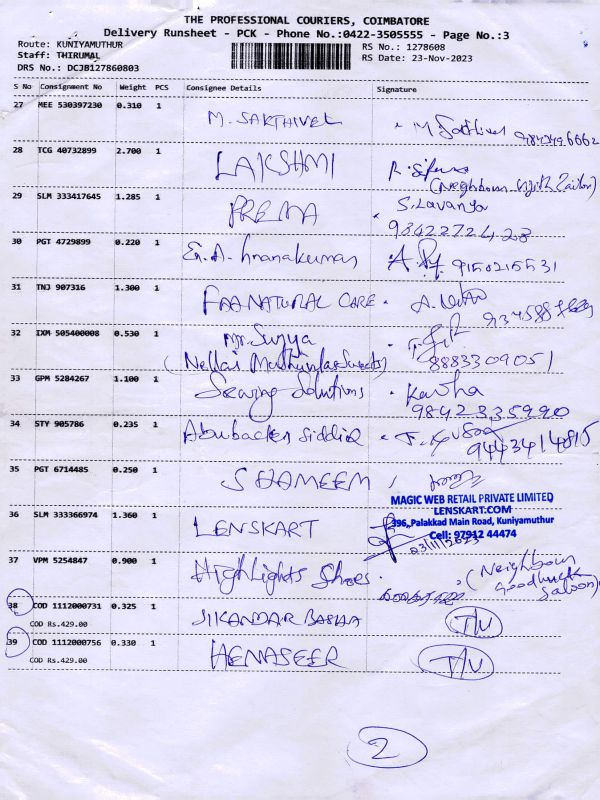 THE PROFESSIONAL COURIERS, COIMBATORE
Delivery Runsheet - PCK - Phone No.:0422-3505555 - Page No.:3
Route: KUNIYAMUTHUR
RS No.: 1278608
Staff: THIRUMAL
RS Date: 23-Nov-2023
DRS No.: DCJB127860803
S No Consignment No Weight PCS Consignee Details Signature
27 MEE 530397230 0.310 1 M. SAKTHIVEL
28 TCG 40732899 2.700 1 LAKSHMI
(Neighbour
29 SLM 333417645 1.285 1 PREMA S. Lavanya
9842272428
30 PGT 4729899 0.220 1 9150215531
31 TNJ 907316 1.300 1 FAA NATURAL CARE
32 IXM 505400008 0.530 1 Mr. Surya
8883309051
33 GPM 5284267 1.100 1 Sewing Solutions Kavtha
9842335990
34 STY 905786 0.235 1 Abubacker Siddiq
9443414815
35 PGT 6714485 0.250 1 SHAMEEM
MAGIC WEB RETAIL PRIVATE LIMITED
LENSKART.COM
396, Palakkad Main Road, Kuniyamuthur
Cell: 97912 44474
36 SLM 333366974 1.360 1 LENSKART
37 VPM 5254847 0.900 1 Highlights Shoes (Neighbour
Goodluck
Saloon)
38 COD 1112000731 0.325 1 SIKANDAR BASHA T/U
COD Rs.429.00
39 COD 1112000756 0.330 1 HENASEER T/U
COD Rs.429.00
2